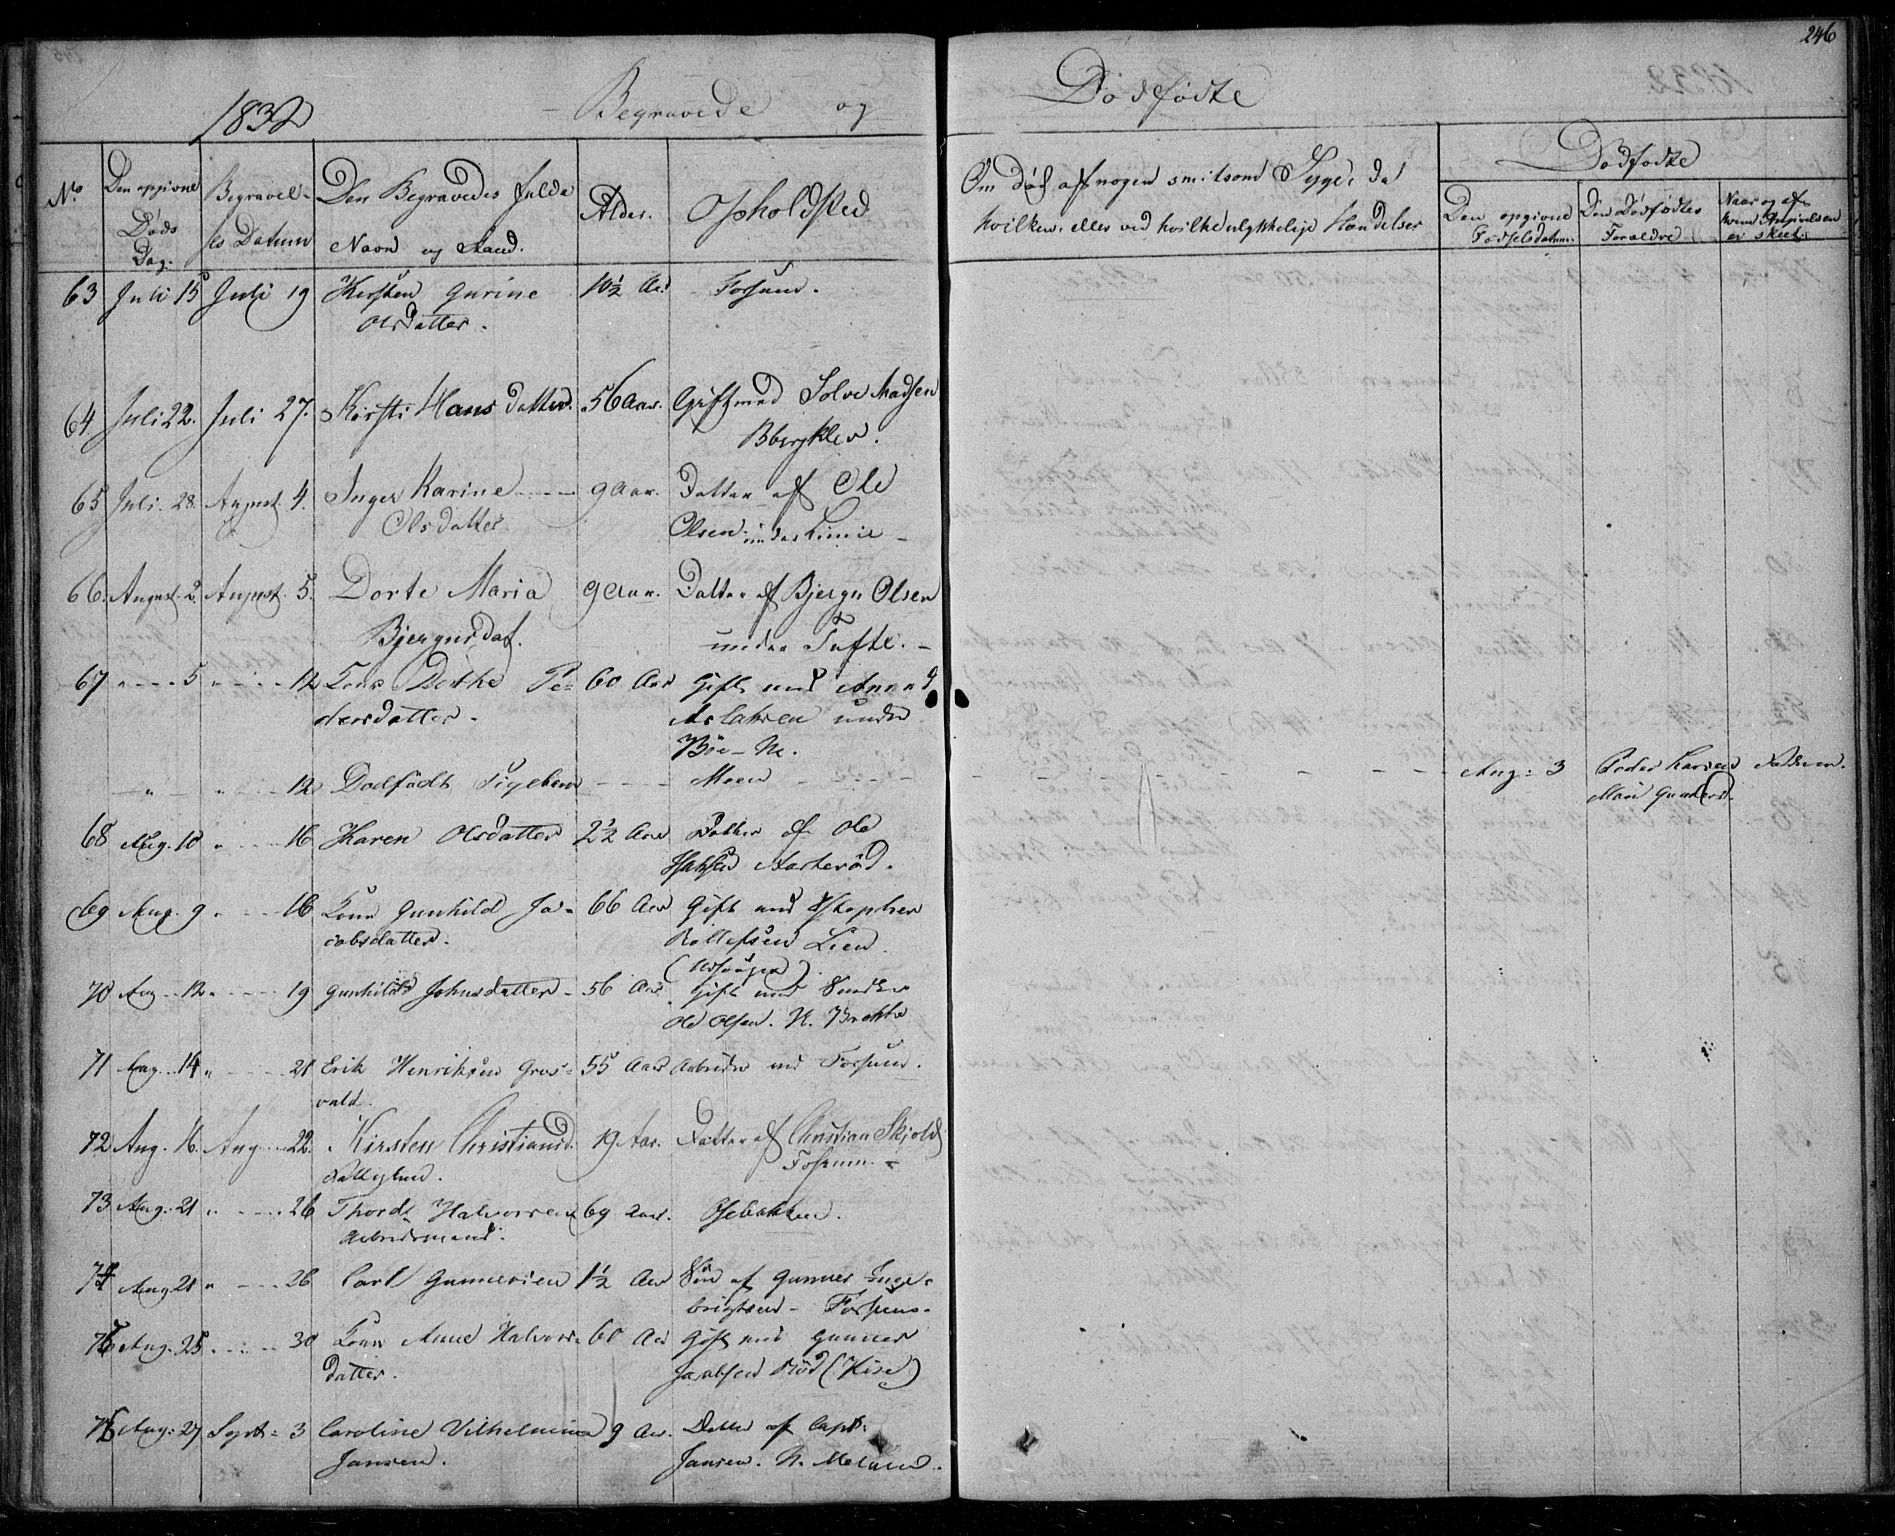 246
1832 Begravede og Dødfødte
No.
Den opgivne Døds Dag.
Begravelses Datum
Den Begravedes fulde Navn og Stand.
Alder.
Opholdsted
Om død af nogen smitsom Syge, da hvilken, eller ved hvilke ulykkelige Hændelser
Dødfødte
Den opgivne Fødselsdatum.
Den Dødfødtes Forældre
Naar og af hvem Angivelsen er skeet.
63 Juli 15 Juli 19 Kirsten Gurine 10½ Aar Fossum.
Olsdatter.
64 Juli 22. Juli 27. Kirsti Hansdatter. 56 Aar. Gift med Solve Madsen
65 Juli 28. August 4. Inger Karine 9 Aar. Datter af Ole
Olsdatter Olsen under
66. August 2. August 5. Dorte Maria 9 Aar. Datter af Bjørgu Olsen
Bjørgusdat. under Tufte.
67 " 5 " 12 Kone Dorthe Pe- 60 Aar Gift med
dersdatter. Aslaksen under
Böe - N.
" " 12 Dodfödt Pigebarn Moen Aug: 3 Peder Larsen Faderen.
68 Aug. 10 " 16 Karen Olsdatter 2½ Aar Datter af Ole
69 Aug. 9 " 16 Kone Gunhild Ja- 66 Aar Gift med
cobsdatter. Rollefsen Lien
70 Aug. 12 " 19 Gunhild Johnsdatter 56 Aar Gift med
Ole Olsen. N. Brekke
71 Aug. 14 " 21 Erik Henriksen Gros- 55 Aar Arbeider ved Fossum.
vald.
72 Aug. 16. Aug 22. Kirsten Christiansd. 19 Aar. Datter af Christian Skjold
Fossum.
73 Aug. 21 " 26 Thord Halvorsen 69 Aar. Osebakken.
Arbeidsmand.
74 Aug 21 " 26 Carl Gunnersen 1½ Aar Søn af Gunner Inge-
brigtsen - Fossum.
75 Aug. 25 " 30 Kone Anne Halvors- 60 Aar Gift med Gunner
datter. Jacobsen Röd (Kise)
76 Aug: 27 Sept: 3 Caroline Vilhelmine 9 Aar. Datter af Capt:
Jansen. Jansen. N.